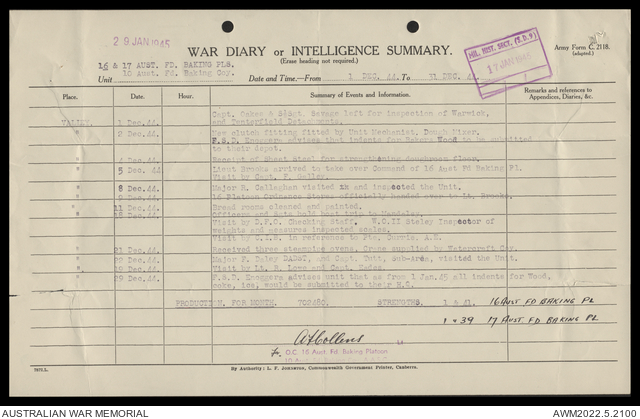 29 JAN 1945
WAR DIARY or INTELLIGENCE SUMMARY.
(Erase heading not required.)
Army Form C. 2118.
(adapted.)
MIL. HIST. SECT. (T.D.9)
17 JAN 1945
16 & 17 AUST. FD. BAKING PLS.
Unit 10 Aust. Fd. Baking Coy.
Date and Time.—From 1 DEC. 44. To 31 DEC. 44.
Place. Date. Hour. Summary of Events and Information. Remarks and references to Appendices, Diaries, &c.
Capt. Oakes & S/Sgt. Savage left for inspection of Warwick,
1 Dec. 44. and Tenterfield Detachments.
" 2 Dec. 44. New clutch fitting fitted by Unit Mechanist. Dough Mixer.
advises that indents for Bakers Wood to be submitted
to their depot.
" 4 Dec. 44. Receipt of Sheet Steel for strengthening doughroom floor.
" 5 Dec. 44. Lieut Brooks arrived to take over Command of 16 Aust Fd Baking Pl.
Visit by Capt. F.
" 8 Dec. 44. Major R. Callaghan visited and inspected the Unit.
" 9 Dec. 44. 16 Platoon Ordnance Stores officially handed over to Lt. Brooks.
" 11 Dec. 44. Bread rooms cleaned and painted.
" Dec. 44. Officers and hold boat trip to
Visit by D.F.O. Checking Staff, W.O.II Staley Inspector of
weights and measures inspected scales.
Visit by in reference to Pte.
" 21 Dec. 44. Received three steampipe ovens. Crane supplied by Watercraft Coy.
" 22 Dec. 44. Major F. Daley DADST, and Capt. Tutt, Sub-Area, visited the Unit.
" 29 Dec. 44. Visit by Lt. R. Love and Capt.
" 29 Dec. 44. advises unit that as from 1 Jan. 45 all indents for Wood,
coke, ice, would be submitted to their H.Q.
PRODUCTION FOR MONTH. 702480. STRENGTHS. 1 & 41. 16 AUST FD BAKING PL
1 & 39 17 AUST FD BAKING PL
Collens Lt
for O.C. 16 Aust. Fd. Baking Platoon
By Authority: L. F. Johnston, Commonwealth Government Printer, Canberra.
AUSTRALIAN WAR MEMORIAL
AWM2022.5.2100